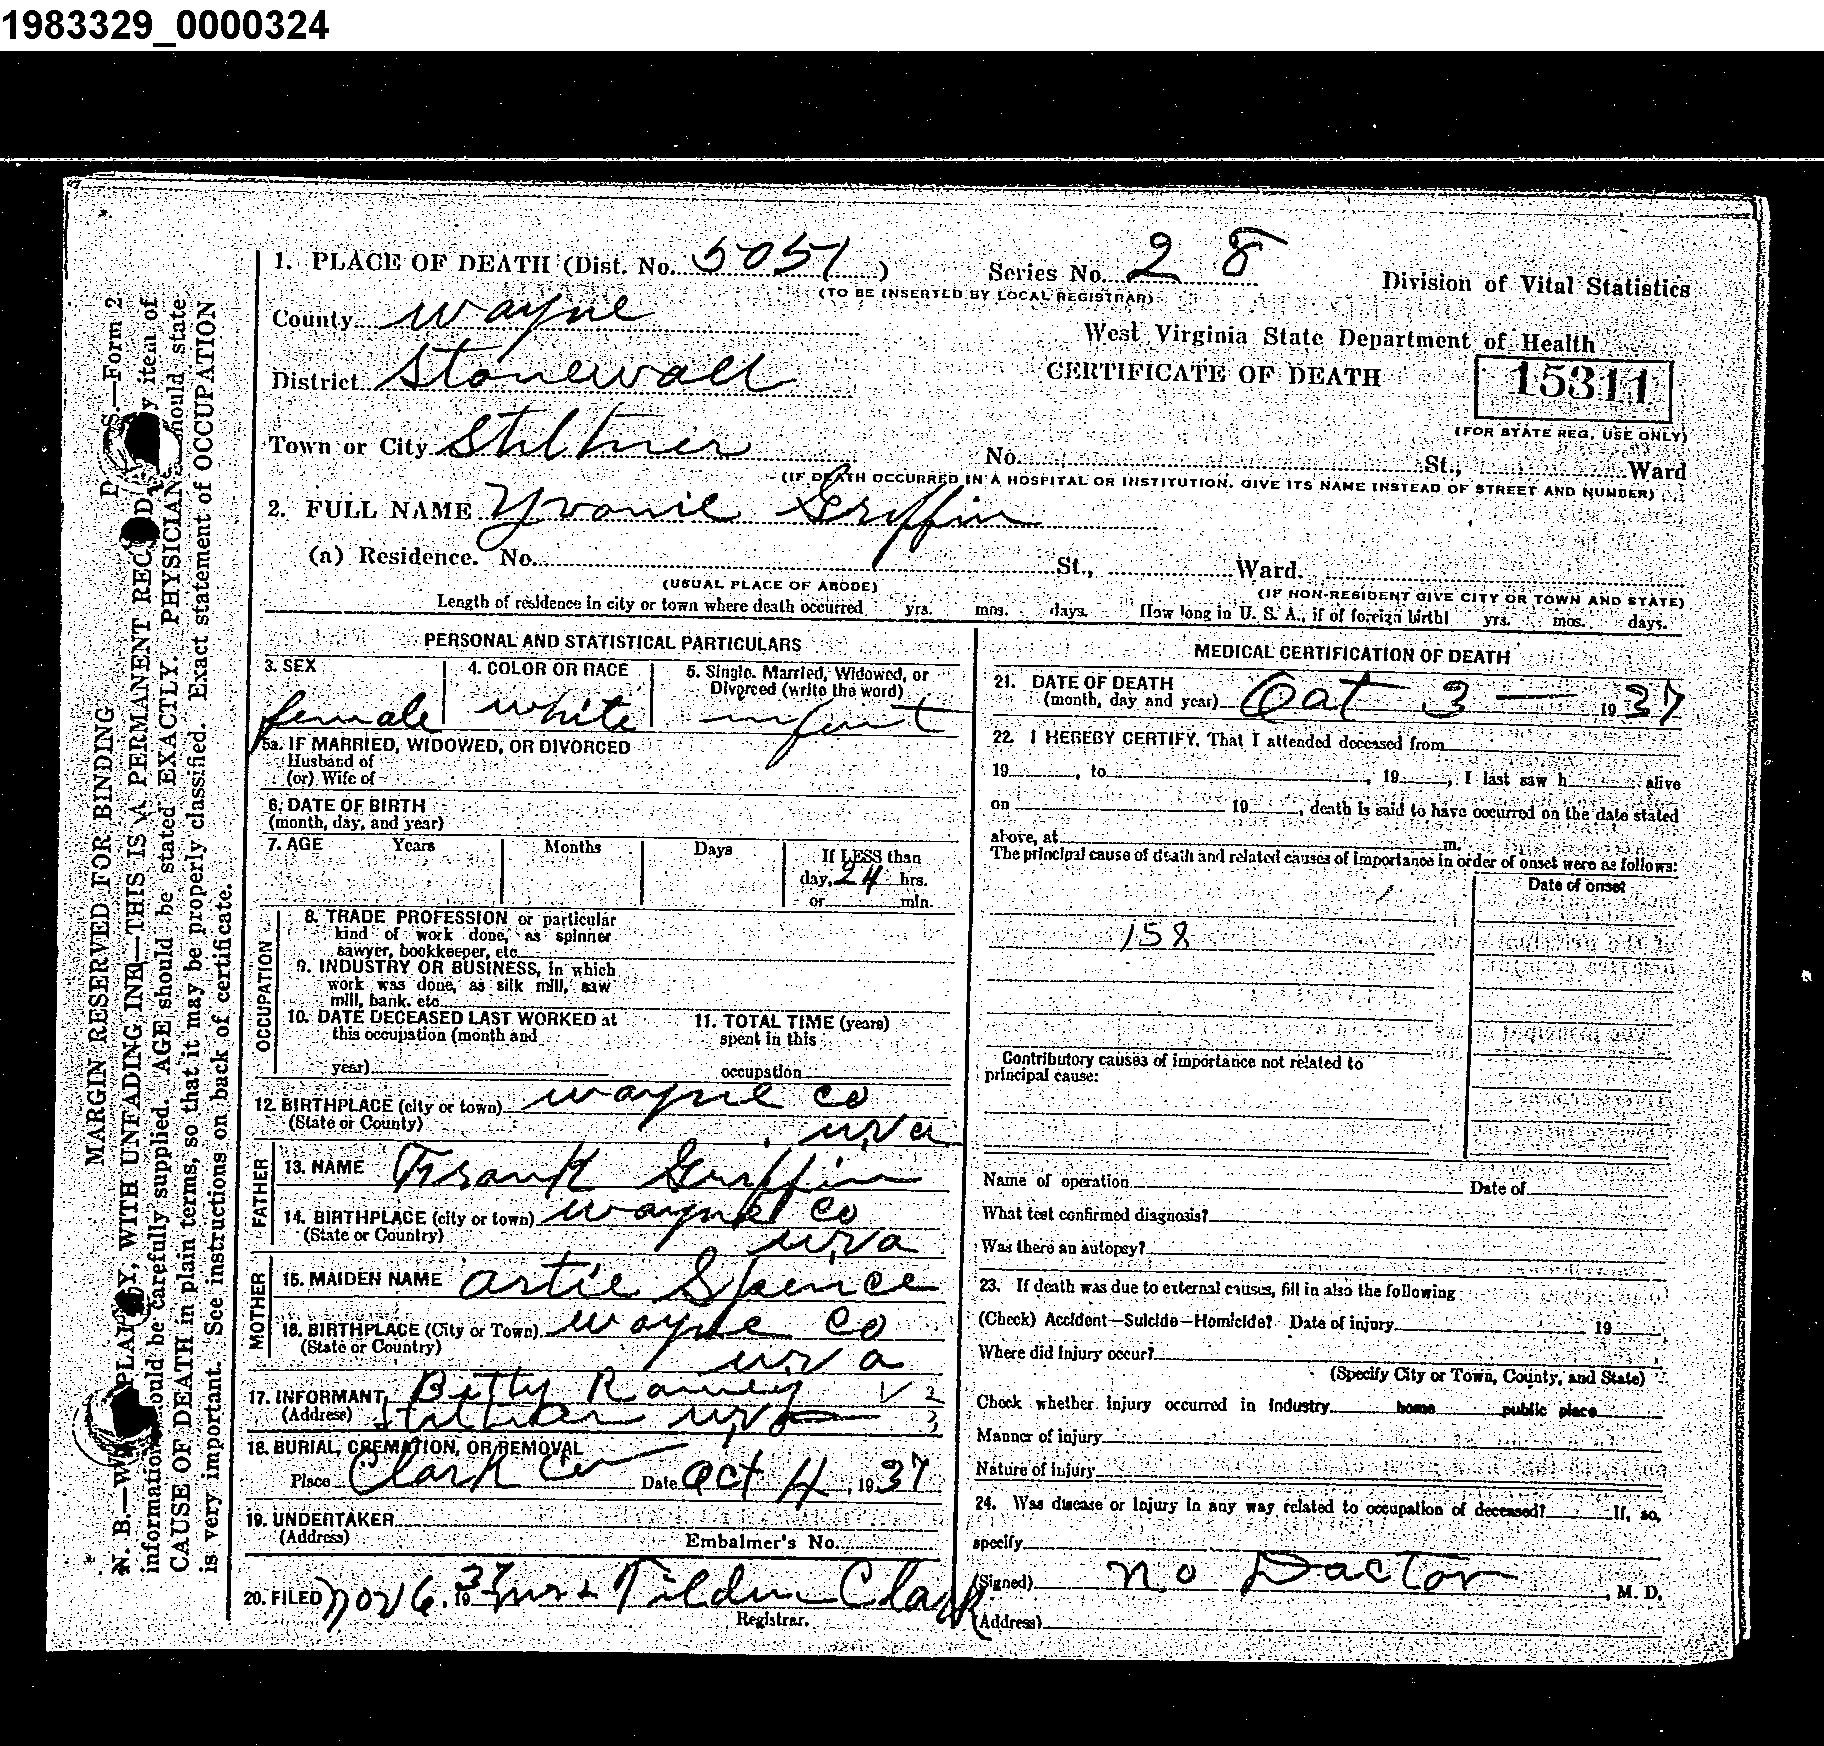 1983329_0000324
1. PLACE OF DEATH (Dist. No. 5051)
Series No. 28
(TO BE INSERTED BY LOCAL REGISTRAR)
Division of Vital Statistics
County Wayne
West Virginia State Department of Health
District Stonewall
CERTIFICATE OF DEATH
15311
(FOR STATE REG. USE ONLY)
Town or City Stiltner
No. St., Ward
(IF DEATH OCCURRED IN A HOSPITAL OR INSTITUTION, GIVE ITS NAME INSTEAD OF STREET AND NUMBER)
2. FULL NAME Yvonie Griffin
(a) Residence. No. St., Ward.
(USUAL PLACE OF ABODE)
(IF NON-RESIDENT GIVE CITY OR TOWN AND STATE)
Length of residence in city or town where death occurred yrs. mos. days. How long in U. S. A., if of foreign birth? yrs. mos. days.
PERSONAL AND STATISTICAL PARTICULARS
3. SEX
female
4. COLOR OR RACE
white
5. Single, Married, Widowed, or
Divorced (write the word)
infant
5a. IF MARRIED, WIDOWED, OR DIVORCED
Husband of
(or) Wife of
6. DATE OF BIRTH
(month, day, and year)
7. AGE Years Months Days If LESS than
day, 24 hrs.
or min.
OCCUPATION
8. TRADE PROFESSION or particular
kind of work done, as spinner
sawyer, bookkeeper, etc.
9. INDUSTRY OR BUSINESS, in which
work was done, as silk mill, saw
mill, bank, etc.
10. DATE DECEASED LAST WORKED at
this occupation (month and
year)
11. TOTAL TIME (years)
spent in this
occupation
12. BIRTHPLACE (city or town) Wayne Co
(State or County) W.Va
FATHER
13. NAME Frank Griffin
14. BIRTHPLACE (city or town) Wayne Co
(State or Country) W.Va
MOTHER
15. MAIDEN NAME Artie Spence
16. BIRTHPLACE (City or Town) Wayne Co
(State or Country) W.Va
17. INFORMANT Betty Ramey
(Address) Stiltner W.Va
18. BURIAL, CREMATION, OR REMOVAL
Place Clark Cem Date Oct 4, 1937
19. UNDERTAKER
(Address) Embalmer's No.
20. FILED Nov 6, 1937 Mrs Tilden Clark
Registrar.
MEDICAL CERTIFICATION OF DEATH
21. DATE OF DEATH
(month, day and year) Oct 3 — 1937
22. I HEREBY CERTIFY, That I attended deceased from
19 , to , 19 , I last saw h alive
on 19 , death is said to have occurred on the date stated
above, at m.
The principal cause of death and related causes of importance in order of onset were as follows:
Date of onset
158
Contributory causes of importance not related to
principal cause:
Name of operation Date of
What test confirmed diagnosis?
Was there an autopsy?
23. If death was due to external causes, fill in also the following
(Check) Accident—Suicide—Homicide? Date of injury 19
Where did injury occur?
(Specify City or Town, County, and State)
Check whether injury occurred in industry home public place
Manner of injury
Nature of injury
24. Was disease or injury in any way related to occupation of deceased? If, so,
specify
(Signed) No Doctor , M. D.
(Address)
MARGIN RESERVED FOR BINDING
S.—Form 2
N. B.— PLAINLY, WITH UNFADING INK—THIS IS A PERMANENT RECORD. item of
information should be carefully supplied. AGE should be stated EXACTLY. PHYSICIANS should state
CAUSE OF DEATH in plain terms, so that it may be properly classified. Exact statement of OCCUPATION
is very important. See instructions on back of certificate.